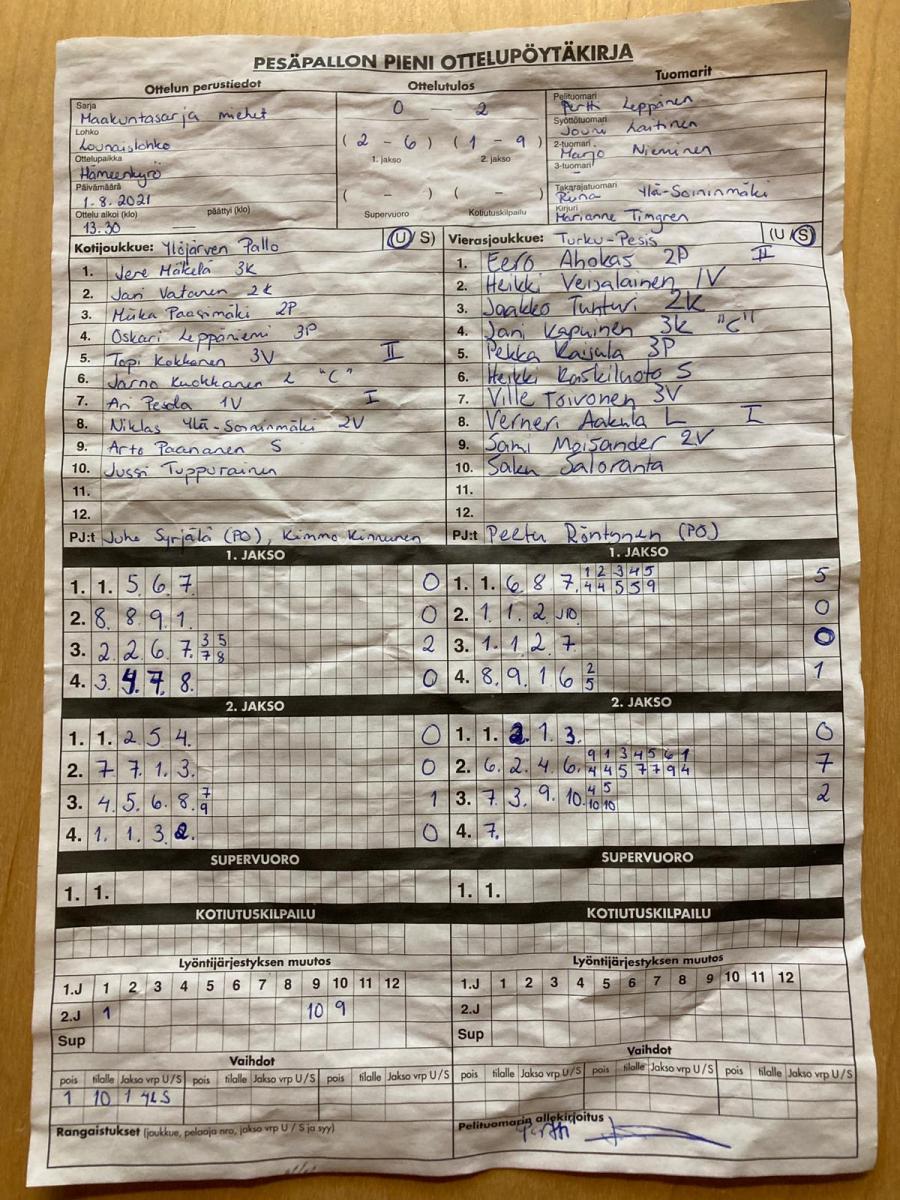 PESÄPALLON PIENI OTTELUPÖYTÄKIRJA
Ottelun perustiedot
Ottelutulos
Tuomarit
Sarja
Maakuntasarja miehet
Lohko
Lounaislohko
Ottelupaikka
Hämeenkyrö
Päivämäärä
1.8.2021
Ottelu alkoi (klo) päättyi (klo)
13.30 —
0 — 2
( 2 - 6 ) ( 1 - 9 )
1. jakso 2. jakso
( - ) ( - )
Supervuoro Kotiutuskilpailu
Pelituomari
Pertti Leppänen
Syöttötuomari
Jouni Laitinen
2-tuomari
Marjo Nieminen
3-tuomari
—
Takarajatuomari
Ylä-Soininmäki
Kirjuri
Marianne Timgren
Kotijoukkue: Ylöjärven Pallo (U / S)
1. Jere Mäkelä 3K
2. Jari Vatanen 2K
3. Miika Paasimäki 2P
4. Oskari Leppäniemi 3P
5. Topi Kokkonen 3V II
6. Jarno Kuokkanen L "C"
7. Ari Pesola 1V I
8. Niklas Ylä-Soininmäki 2V
9. Arto Paananen S
10. Jussi Tuppurainen
11.
12.
PJ:t Juha Syrjälä (PO), Kimmo Kinnunen
Vierasjoukkue: Turku-Pesis (U / S)
1. Eero Ahokas 2P II
2. Heikki Veijalainen 1V
3. Jaakko Tunturi 2K
4. Jani Kapuinen 3K "C"
5. Pekka Kaijula 3P
6. Heikki Kaskiluoto S
7. Ville Toivonen 3V
8. Verneri Aakula L I
9. Sami Moisander 2V
10. Saku Saloranta
11.
12.
PJ:t Peetu Röntynen (PO)
1. JAKSO
1. 1. 5. 6. 7. 0
2. 8. 8. 9. 1. 0
3. 2. 2. 6. 7. 3 5 2
7 8
4. 3. 4. 7. 8. 0
1. JAKSO
1. 1. 6. 8. 7. 1 2 3 4 5 5
4 4 5 5 9
2. 1. 1. 2. 0
3. 1. 1. 2. 7. 0
4. 8. 9. 1. 6 2 1
5
2. JAKSO
1. 1. 2. 5. 4. 0
2. 7. 7. 1. 3. 0
3. 4. 5. 6. 8. 7 1
9
4. 1. 1. 3. 2. 0
2. JAKSO
1. 1. 2. 1. 3. 0
2. 6. 2. 4. 6. 9 1 3 4 5 6 1 7
4 4 5 7 7 9 4
3. 7. 3. 9. 10. 4 5 2
10 10
4. 7.
SUPERVUORO
1. 1.
SUPERVUORO
1. 1.
KOTIUTUSKILPAILU
KOTIUTUSKILPAILU
Lyöntijärjestyksen muutos
1.J 1 2 3 4 5 6 7 8 9 10 11 12
2.J 1 10 9
Sup
Lyöntijärjestyksen muutos
1.J 1 2 3 4 5 6 7 8 9 10 11 12
2.J
Sup
Vaihdot
pois tilalle Jakso vrp U / S pois tilalle Jakso vrp U / S pois tilalle Jakso vrp U / S
1 10 1 4L S
Vaihdot
pois tilalle Jakso vrp U / S pois tilalle Jakso vrp U / S pois tilalle Jakso vrp U / S
Rangaistukset (joukkue, pelaaja nro, jakso vrp U / S ja syy)
Pelituomarin allekirjoitus
Pertti